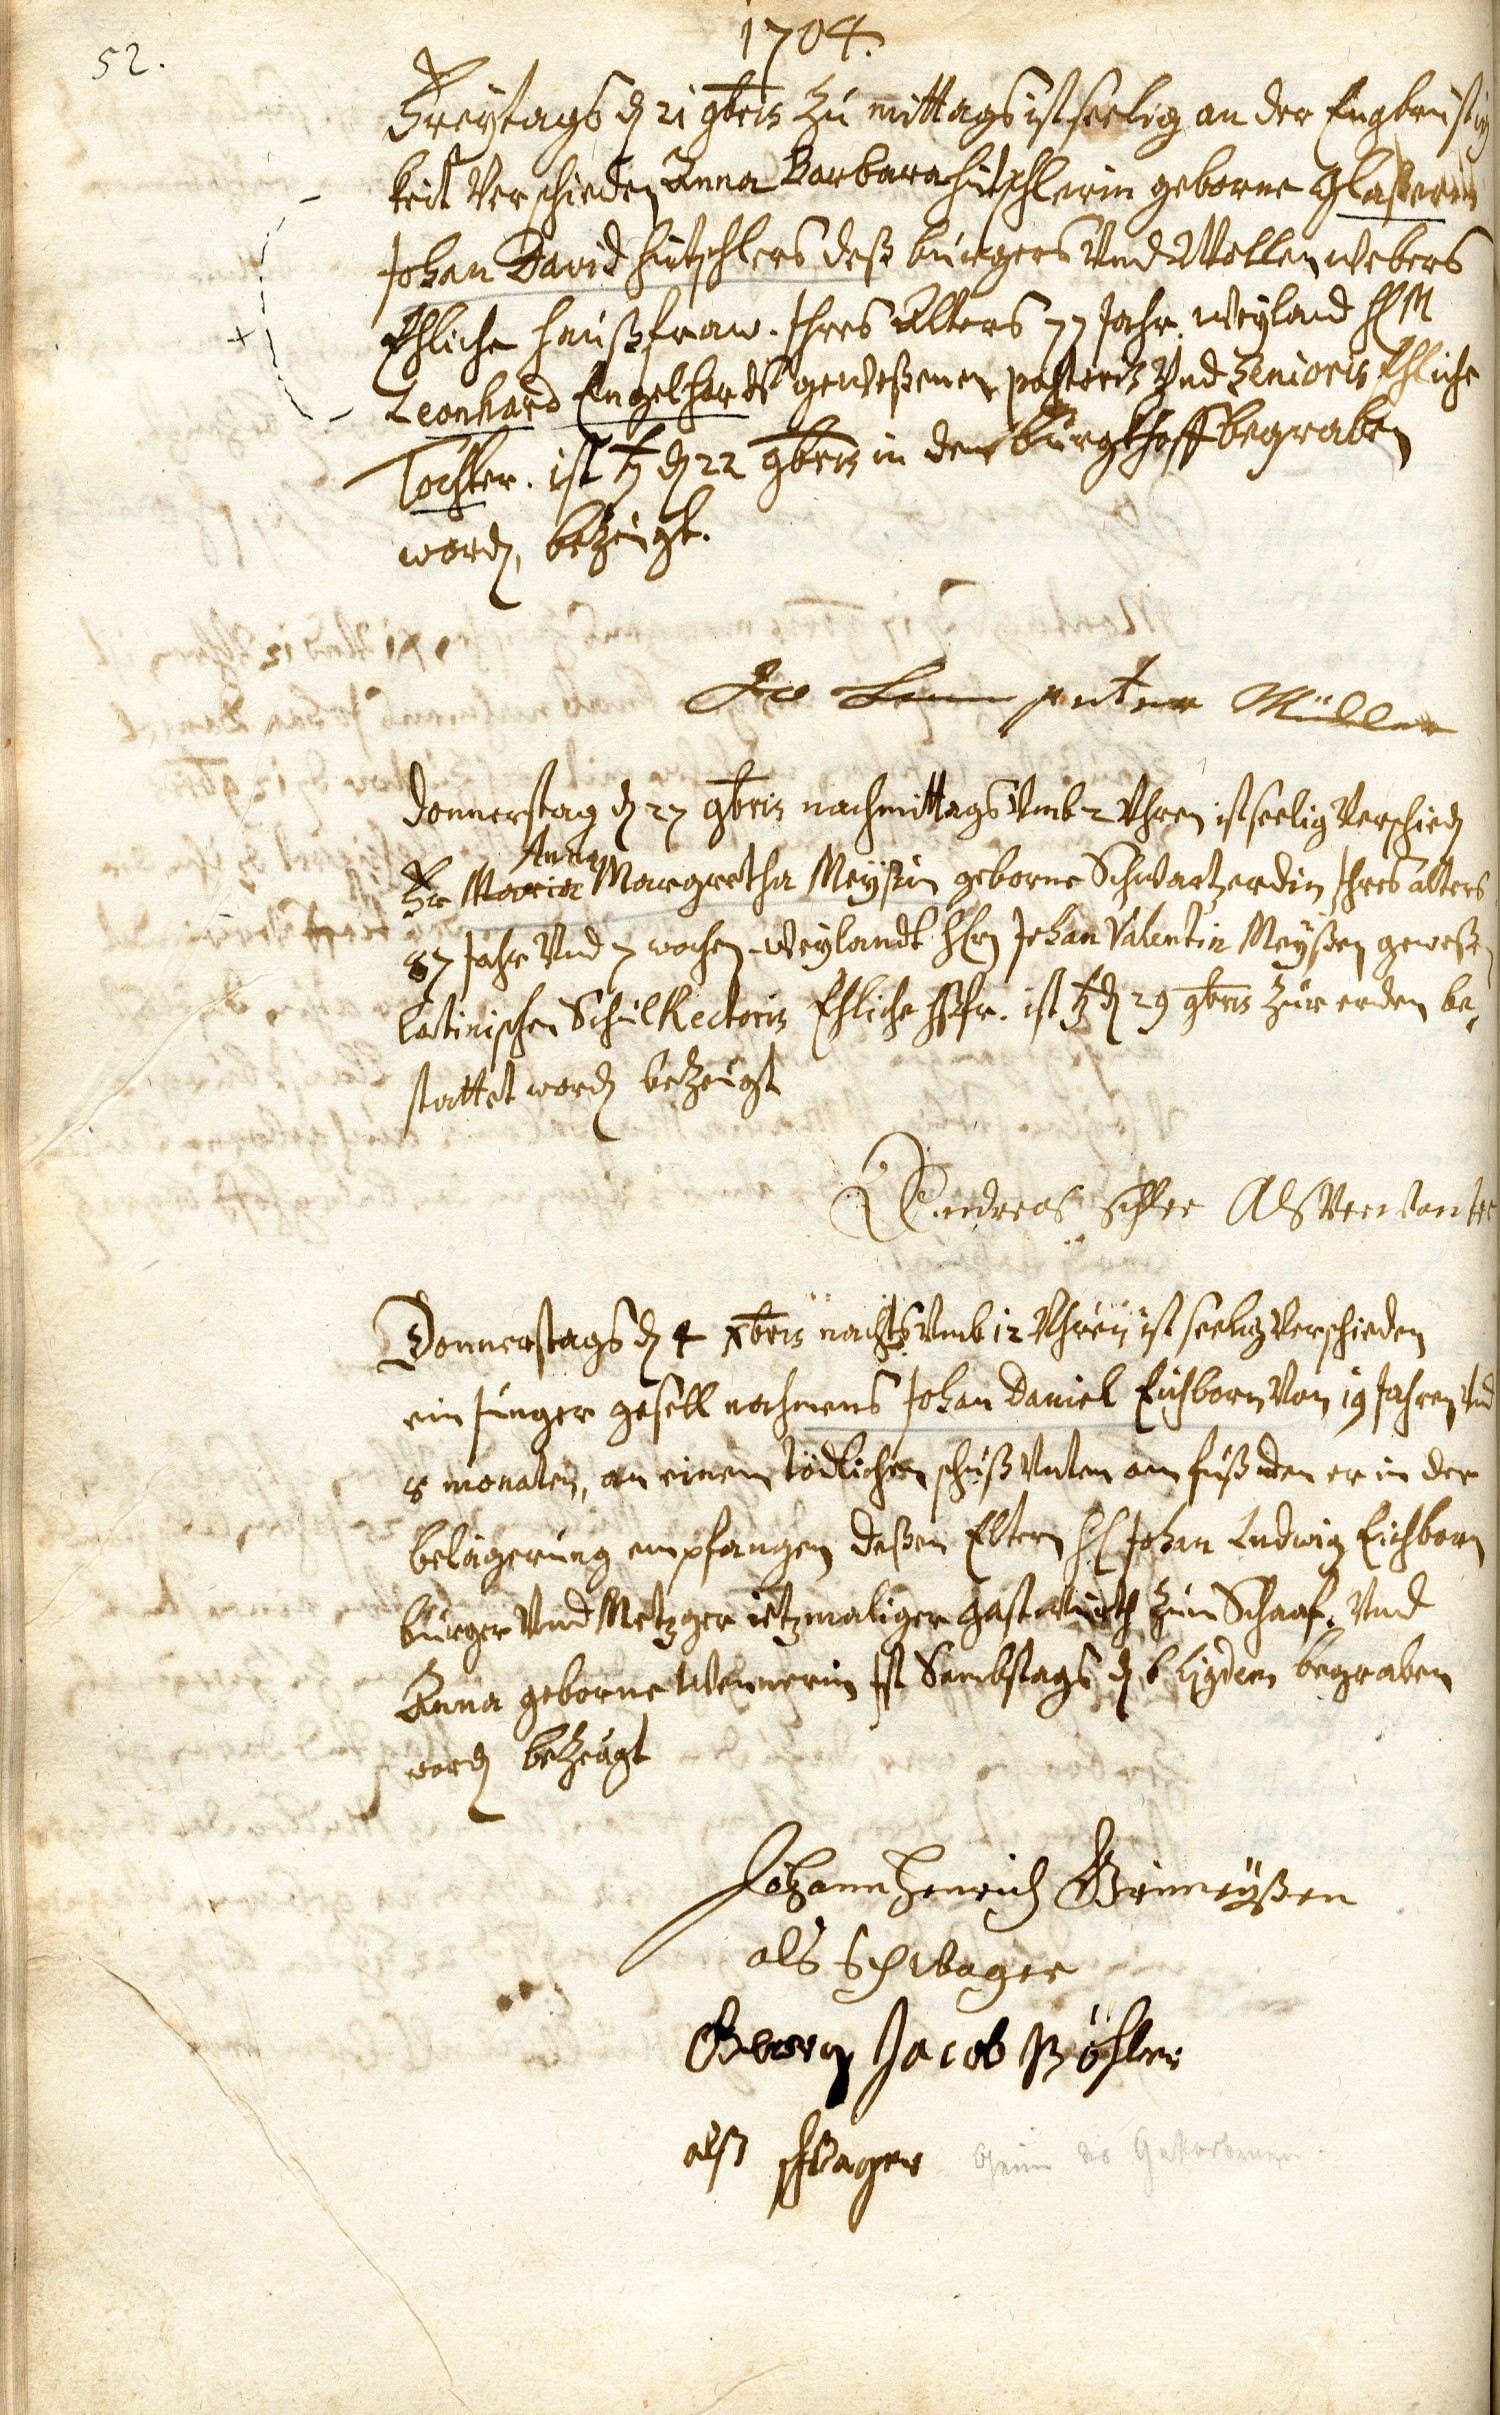 52.
1704.
Freÿtags d 21 9bris zu mittags ist seelig an der Engbrüstig
keit Verschieden Anna Barbara Hütschlerin geborne Glaßerin
Johan David Hütschlers deß burgers Und Wollenwebers
Ehliche haußfraw. Ihres Alters 77 Jahr. Weyland H M
Leonhard Engelhardts geweßenen pastoris Und Senioris Ehliche
Tochter. ist d 22 9bris in den burgkhoff begraben
word, bezeugt.
Müller
Donnerstag d 27 9bris nachmittags Umb 2 Uhren ist seelig Verschied
Anna
Fr Maria Margretha Meÿßin geborne Schwartzerdin Ihres alters
87 Jahr Und 7 wochen Weylandt Hrn Johan Valentin Meÿßen geweßen
latinischen Schül Rectoris Ehliche Hßfr. ist d 29 9bris zur erden be,
stattet word bezeugt
Andreas Als Verwanter
Donnerstags d 4 Xbris nachts Umb 12 Uhren ist seelig Verschieden
ein Junger gesell nahmens Johan Daniel Eichborn Von 19 Jahren Und
8 monaten, an einem tödlichen schuß Unten am fuß den er in der
belägerung empfangen deßen Eltern H Johan Ludwig Eichborn
burger Und Metzger ietzmaliger gastwirth zum Schaaf. Und
Anna geborne Wennerin Ist Sambstags d 6 begraben
word bezeugt
Johann Henrich Grimeÿßen
als Schwager
Georg Jacob Böhler
alß schwager